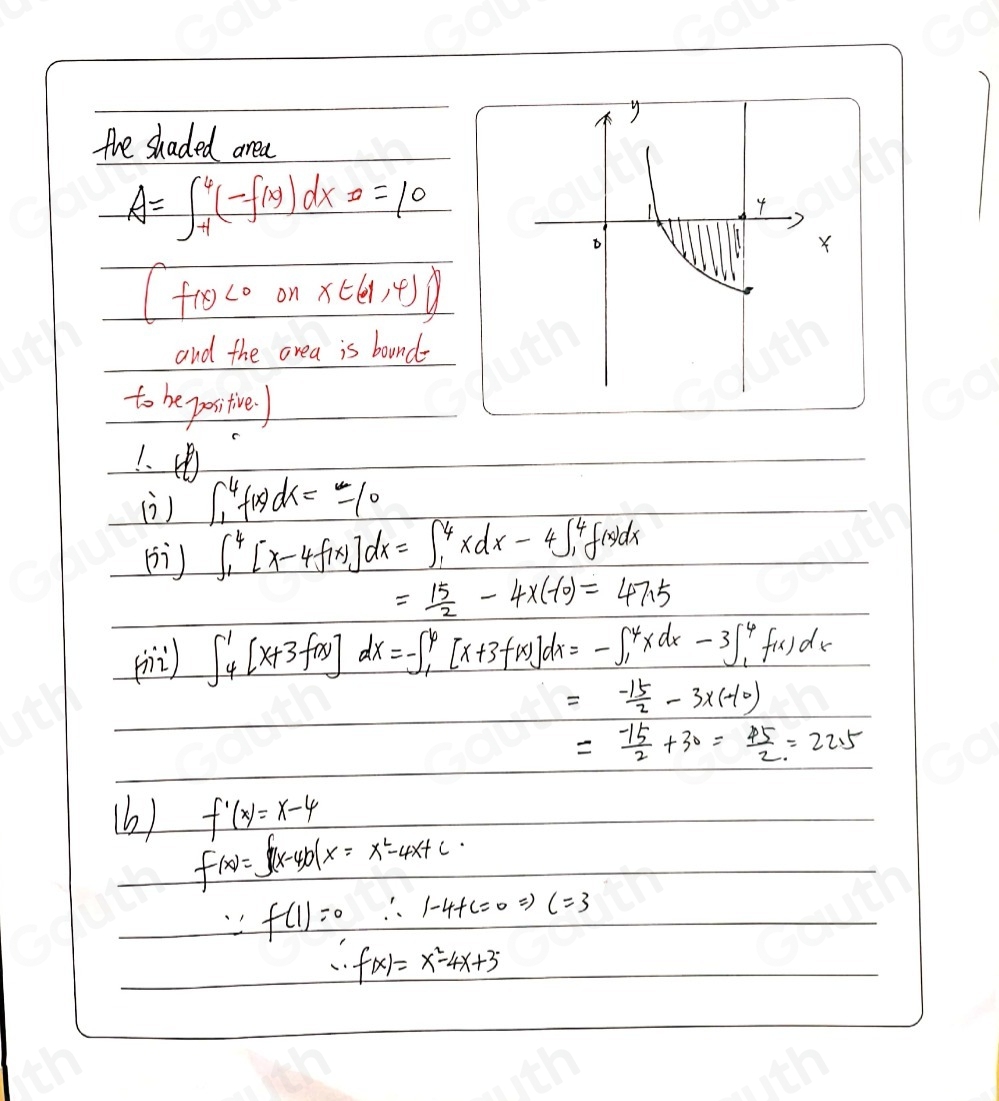 the shaded area
A = ∫₁⁴ (-f(x)) dx = 10
( f(x) < 0 on x ∈ (1, 4)
and the area is bound
to be positive.)
y
1
4
0
x
(i) ∫₁⁴ f(x) dx = -10
(ii) ∫₁⁴ [x-4f(x)] dx = ∫₁⁴ x dx - 4∫₁⁴ f(x) dx
= 15/2 - 4×(-10) = 47.5
(iii) ∫₄¹ [x+3f(x)] dx = -∫₁⁴ [x+3f(x)] dx = -∫₁⁴ x dx - 3∫₁⁴ f(x) dx
= -15/2 - 3×(-10)
= -15/2 + 30 = 45/2 = 22.5
(b) f'(x) = x-4
f(x) = ∫(x-4)dx = x²-4x+c.
∵ f(1) = 0 ∴ 1-4+c=0 ⇒ c=3
∴ f(x) = x²-4x+3